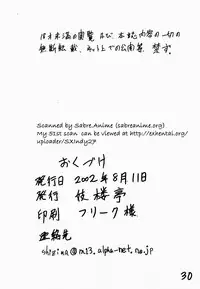 18才未満の閲覧及び、本誌内容の一切の
無断転載、ネット上での公開等、禁ず。
Scanned by Sabre.Anime (sabreanime.org)
My 51st scan can be viewed at http://exhentai.org/
uploader/SXIndy27
おくづけ
発行日 2002年8月11日
発行 伎楼亭
印刷 フリーク様
連絡先
shizina@m13.alpha-net.ne.jp
30